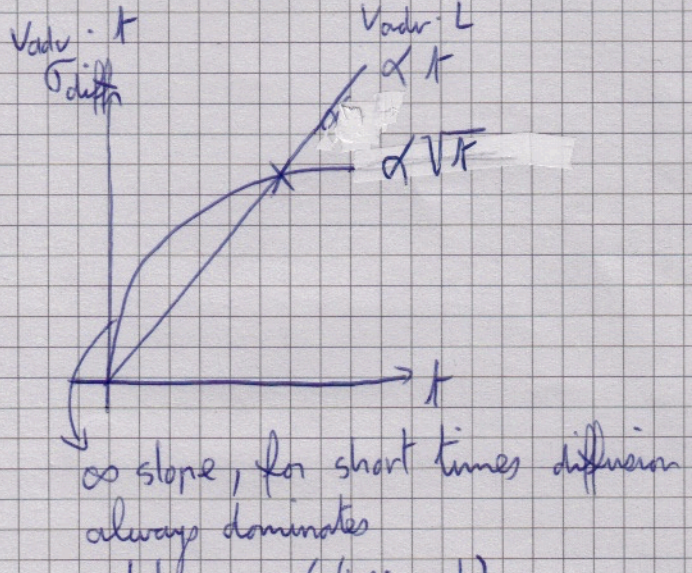 Vadv. t
σdiff
Vadv. L
α t
α √t
t
∞ slope, for short times diffusion
always dominates